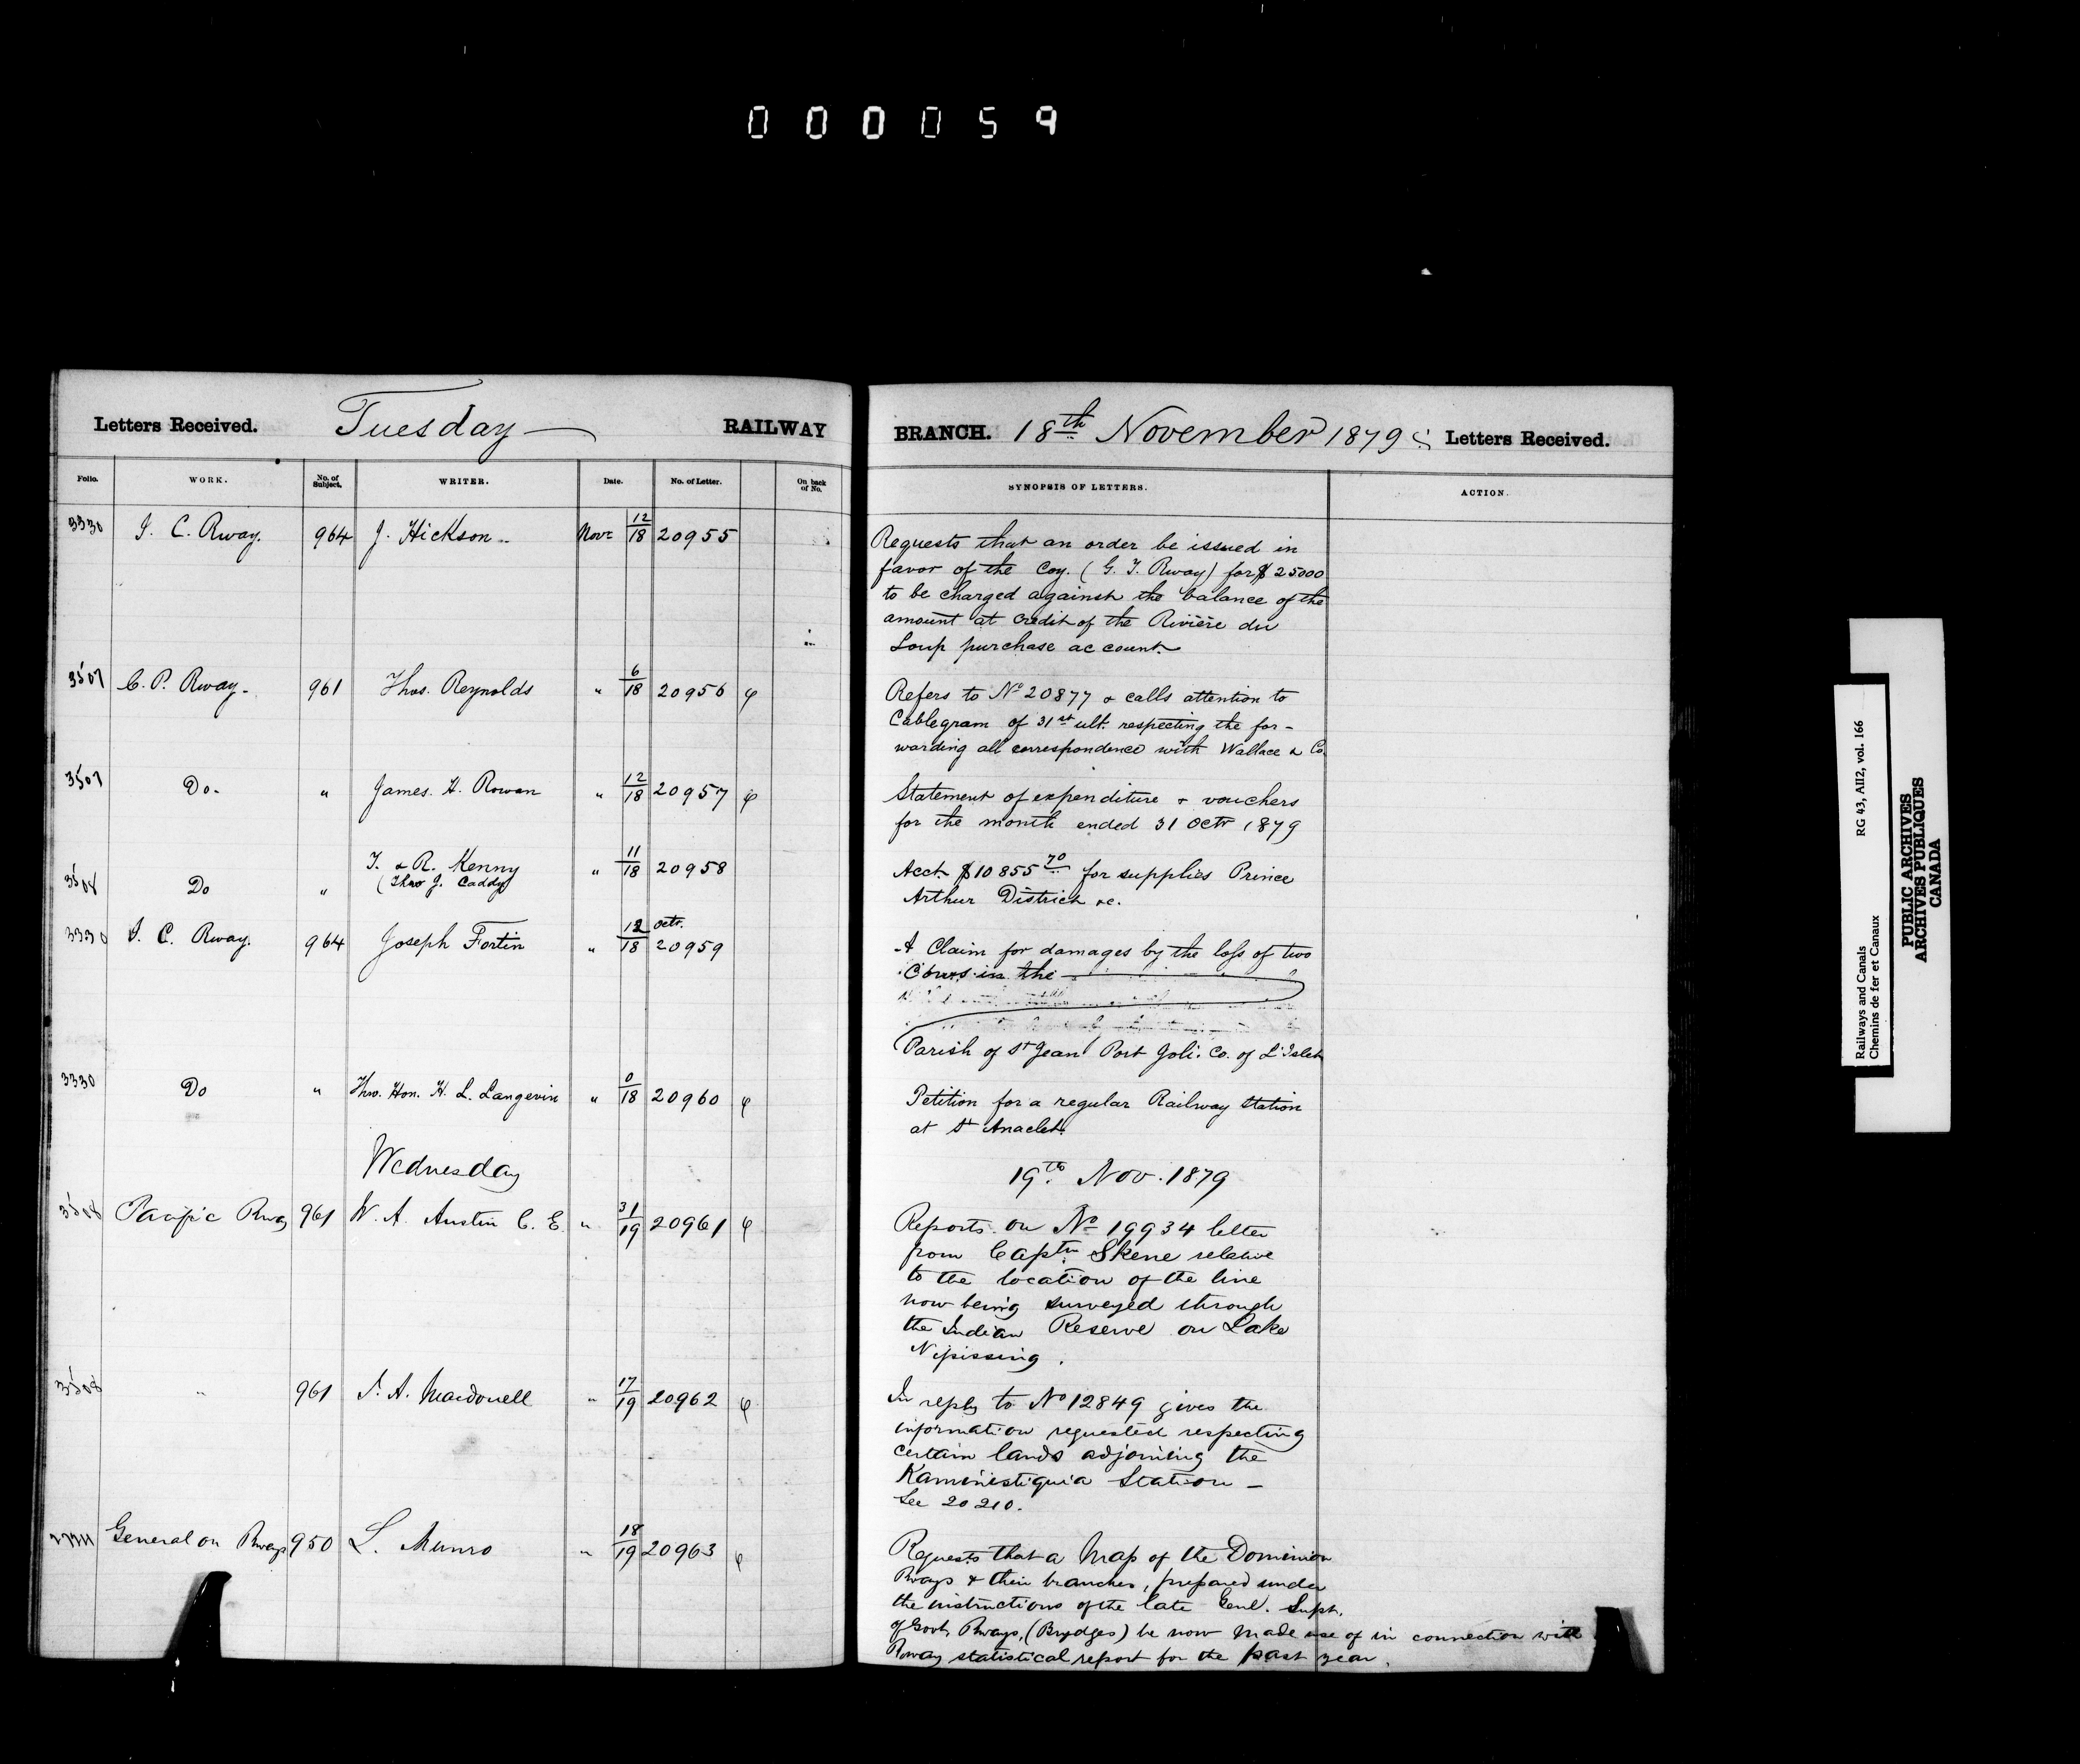 000059
Letters Received. Tuesday RAILWAY
BRANCH. 18th November 1879 Letters Received.
Folio. WORK. No. of Subject. WRITER. Date. No. of Letter. On back of No.
SYNOPSIS OF LETTERS. ACTION.
3330 I. C. Rway. 964 J. Hickson Novr 12/18 20955
Requests that an order be issued in
favor of the Coy. (G. T. Rway) for $25000
to be charged against the balance of the
amount at credit of the Rivière du
Loup purchase account.
3507 C. P. Rway. 961 Thos. Reynolds " 6/18 20956 φ
Refers to No 20877 & calls attention to
Cablegram of 31st ult. respecting the for-
warding all correspondence with Wallace & Co.
3507 Do. " James. H. Rowan " 12/18 20957 φ
Statement of expenditure & vouchers
for the month ended 31 Octr 1879
3508 Do " T. & R. Kenny " 11/18 20958
(Thro J. Caddy)
Acct. $10855 70 for supplies Prince
Arthur District &c.
3330 I. C. Rway. 964 Joseph Fortin " 12/18 Octr. 20959
A Claim for damages by the loss of two
Cows in the
Parish of St Jean Port Joli. Co. of L'Islet
3330 Do " Thro. Hon. H. L. Langevin " 0/18 20960 φ
Petition for a regular Railway station
at St Anaclet.
Wednesday
19th Nov. 1879
3508 Pacific Rway 961 W. A. Austin C. E. " 31/19 20961 φ
Reports on No 19934 letter
from Captn Skene relative
to the location of the line
now being surveyed through
the Indian Reserve on Lake
Nipissing.
3508 " 961 A. Macdonell " 17/19 20962 φ
In reply to No 12849 gives the
information requested respecting
certain lands adjoining the
Kaministiquia Station -
See 20210.
General on Rways 950 L. Munro " 18/19 20963 φ
Requests that a Map of the Dominion
Rways & their branches, prepared under
the instructions of the late Genl. Supt.
of Govt. Rways, (Brydges) be now made use of in connection with
Rway statistical report for the past year.
Railways and Canals
Chemins de fer et Canaux
RG 43, AII2, vol. 166
PUBLIC ARCHIVES
ARCHIVES PUBLIQUES
CANADA